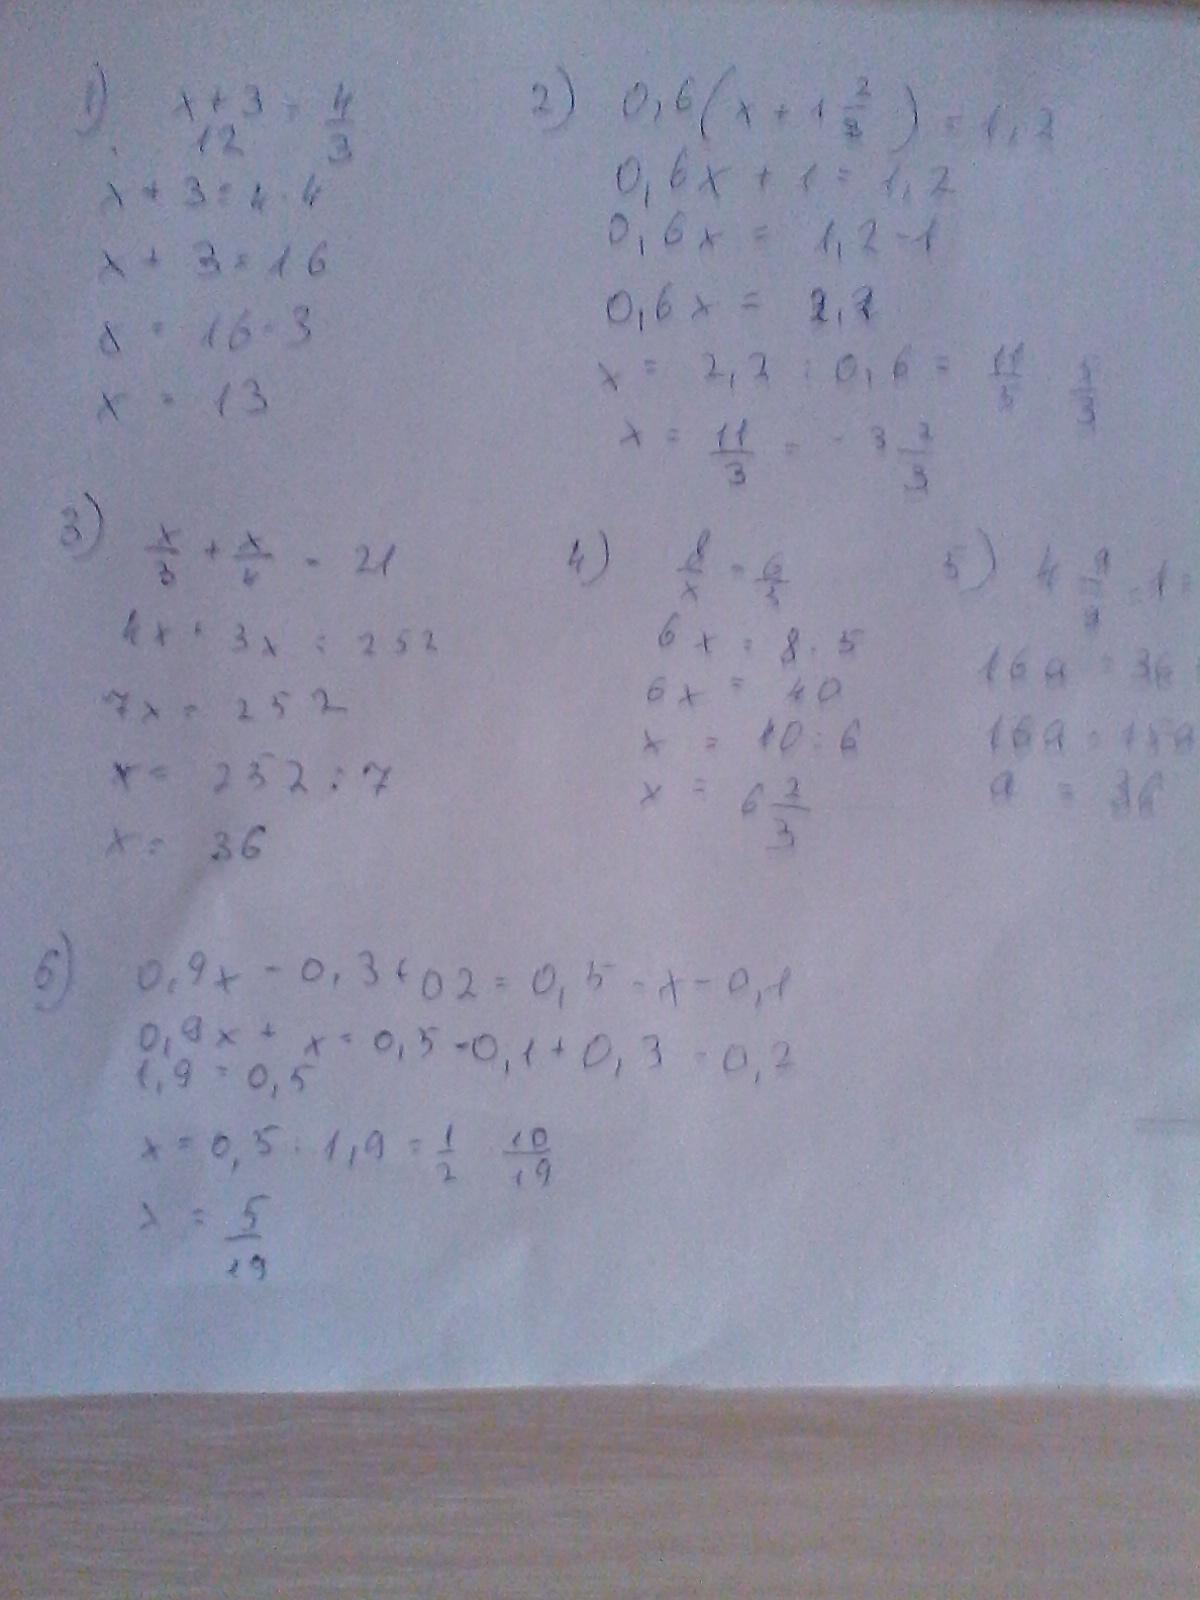 1) x + 3 = 4
12 3
x + 3 = 4 · 4
x + 3 = 16
x = 16 - 3
x = 13
2) 0,6(x + 1 2/3) = 1,2
0,6x + 1 = 1,2
0,6x = 1,2 - 1
0,6x = 2,2
x = 2,2 : 0,6 = 11/5 5/3
x = 11/3 = - 3 2/3
3) x/3 + x/4 = 21
4x + 3x = 252
7x = 252
x = 252 : 7
x = 36
4) 8/x = 6/5
6x = 8 · 5
6x = 40
x = 10 : 6
x = 6 2/3
5) 4
16a = 36
16a = 15a
a = 36
6) 0,9x - 0,3 + 02 = 0,5 - x - 0,1
0,9x + x = 0,5 - 0,1 + 0,3 - 0,2
1,9 = 0,5
x = 0,5 : 1,9 = 1/2 · 10/19
x = 5/19